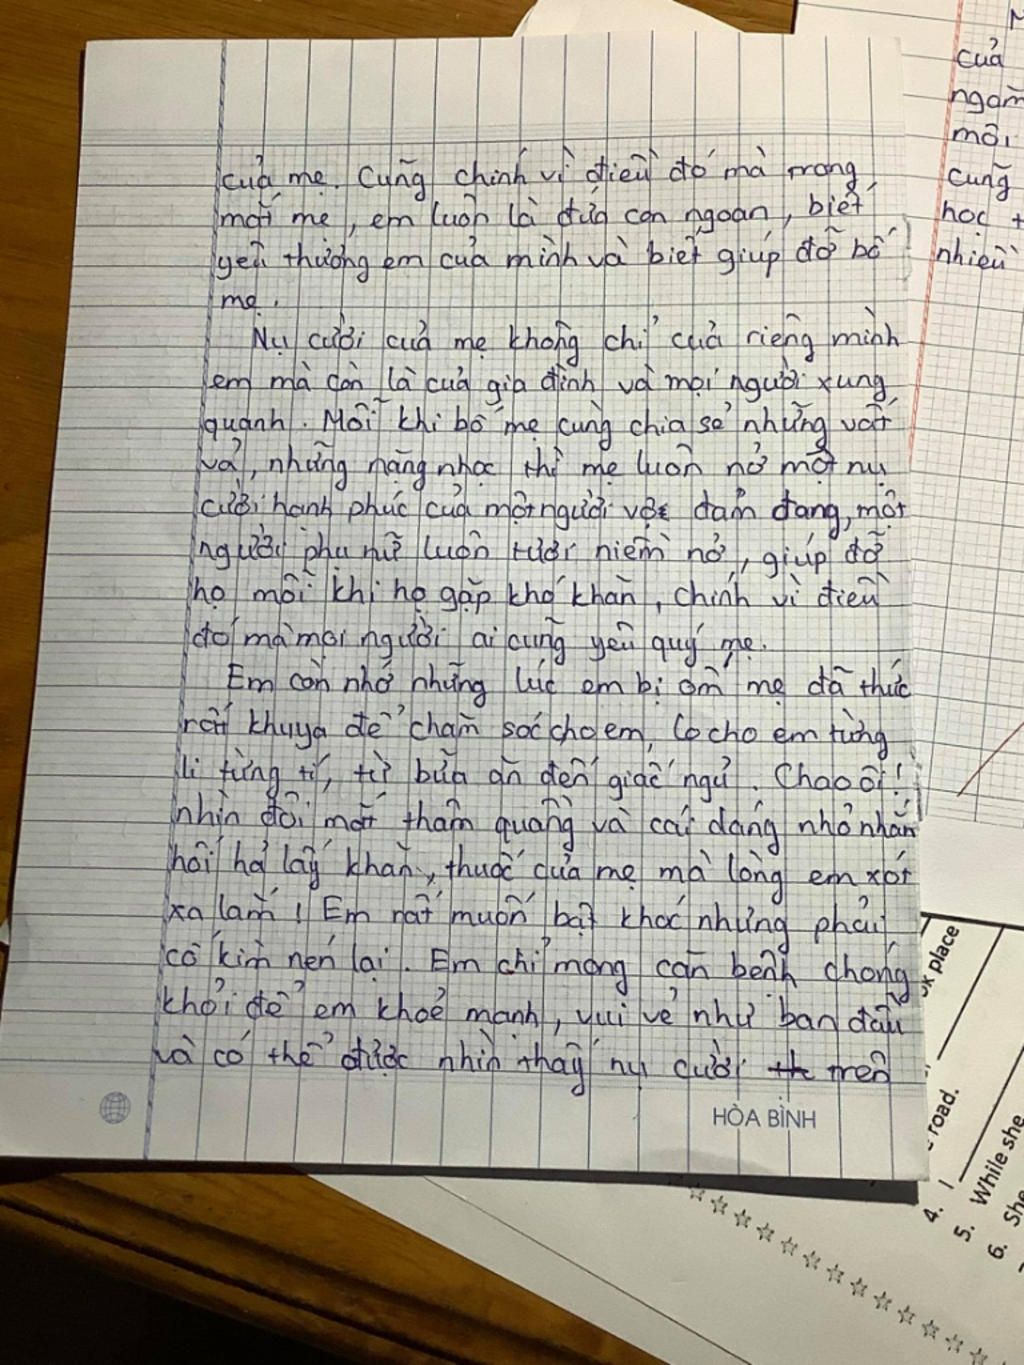 của mẹ. Cũng chính vì điều đó mà trong
mắt mẹ, em luôn là đứa con ngoan, biết
yêu thương em của mình và biết giúp đỡ bố
mẹ.
Nụ cười của mẹ không chỉ của riêng mình
em mà còn là của gia đình và mọi người xung
quanh. Mỗi khi bố mẹ cùng chia sẻ những vất
vả, những nặng nhọc thì mẹ luôn nở một nụ
cười hạnh phúc của một người vợ đảm đang, một
người phụ nữ luôn tươi niềm nở, giúp đỡ
họ mỗi khi họ gặp khó khăn, chính vì điều
đó mà mọi người ai cũng yêu quý mẹ.
Em còn nhớ những lúc em bị ốm mẹ đã thức
rất khuya để chăm sóc cho em, lo cho em từng
li từng tí, từ bữa ăn đến giấc ngủ. Chao ôi!
nhìn đôi mắt thâm quầng và cái dáng nhỏ nhắn
hối hả lấy khăn, thuốc của mẹ mà lòng em xót
xa lắm! Em rất muốn bật khóc nhưng phải
cố kìm nén lại. Em chỉ mong căn bệnh chóng
khỏi để em khoẻ mạnh, vui vẻ như ban đầu
và có thể được nhìn thấy nụ cười th trên
HÒA BÌNH
của
cũng
học
nhiều
place
road.
4. I
5. While she
6. She